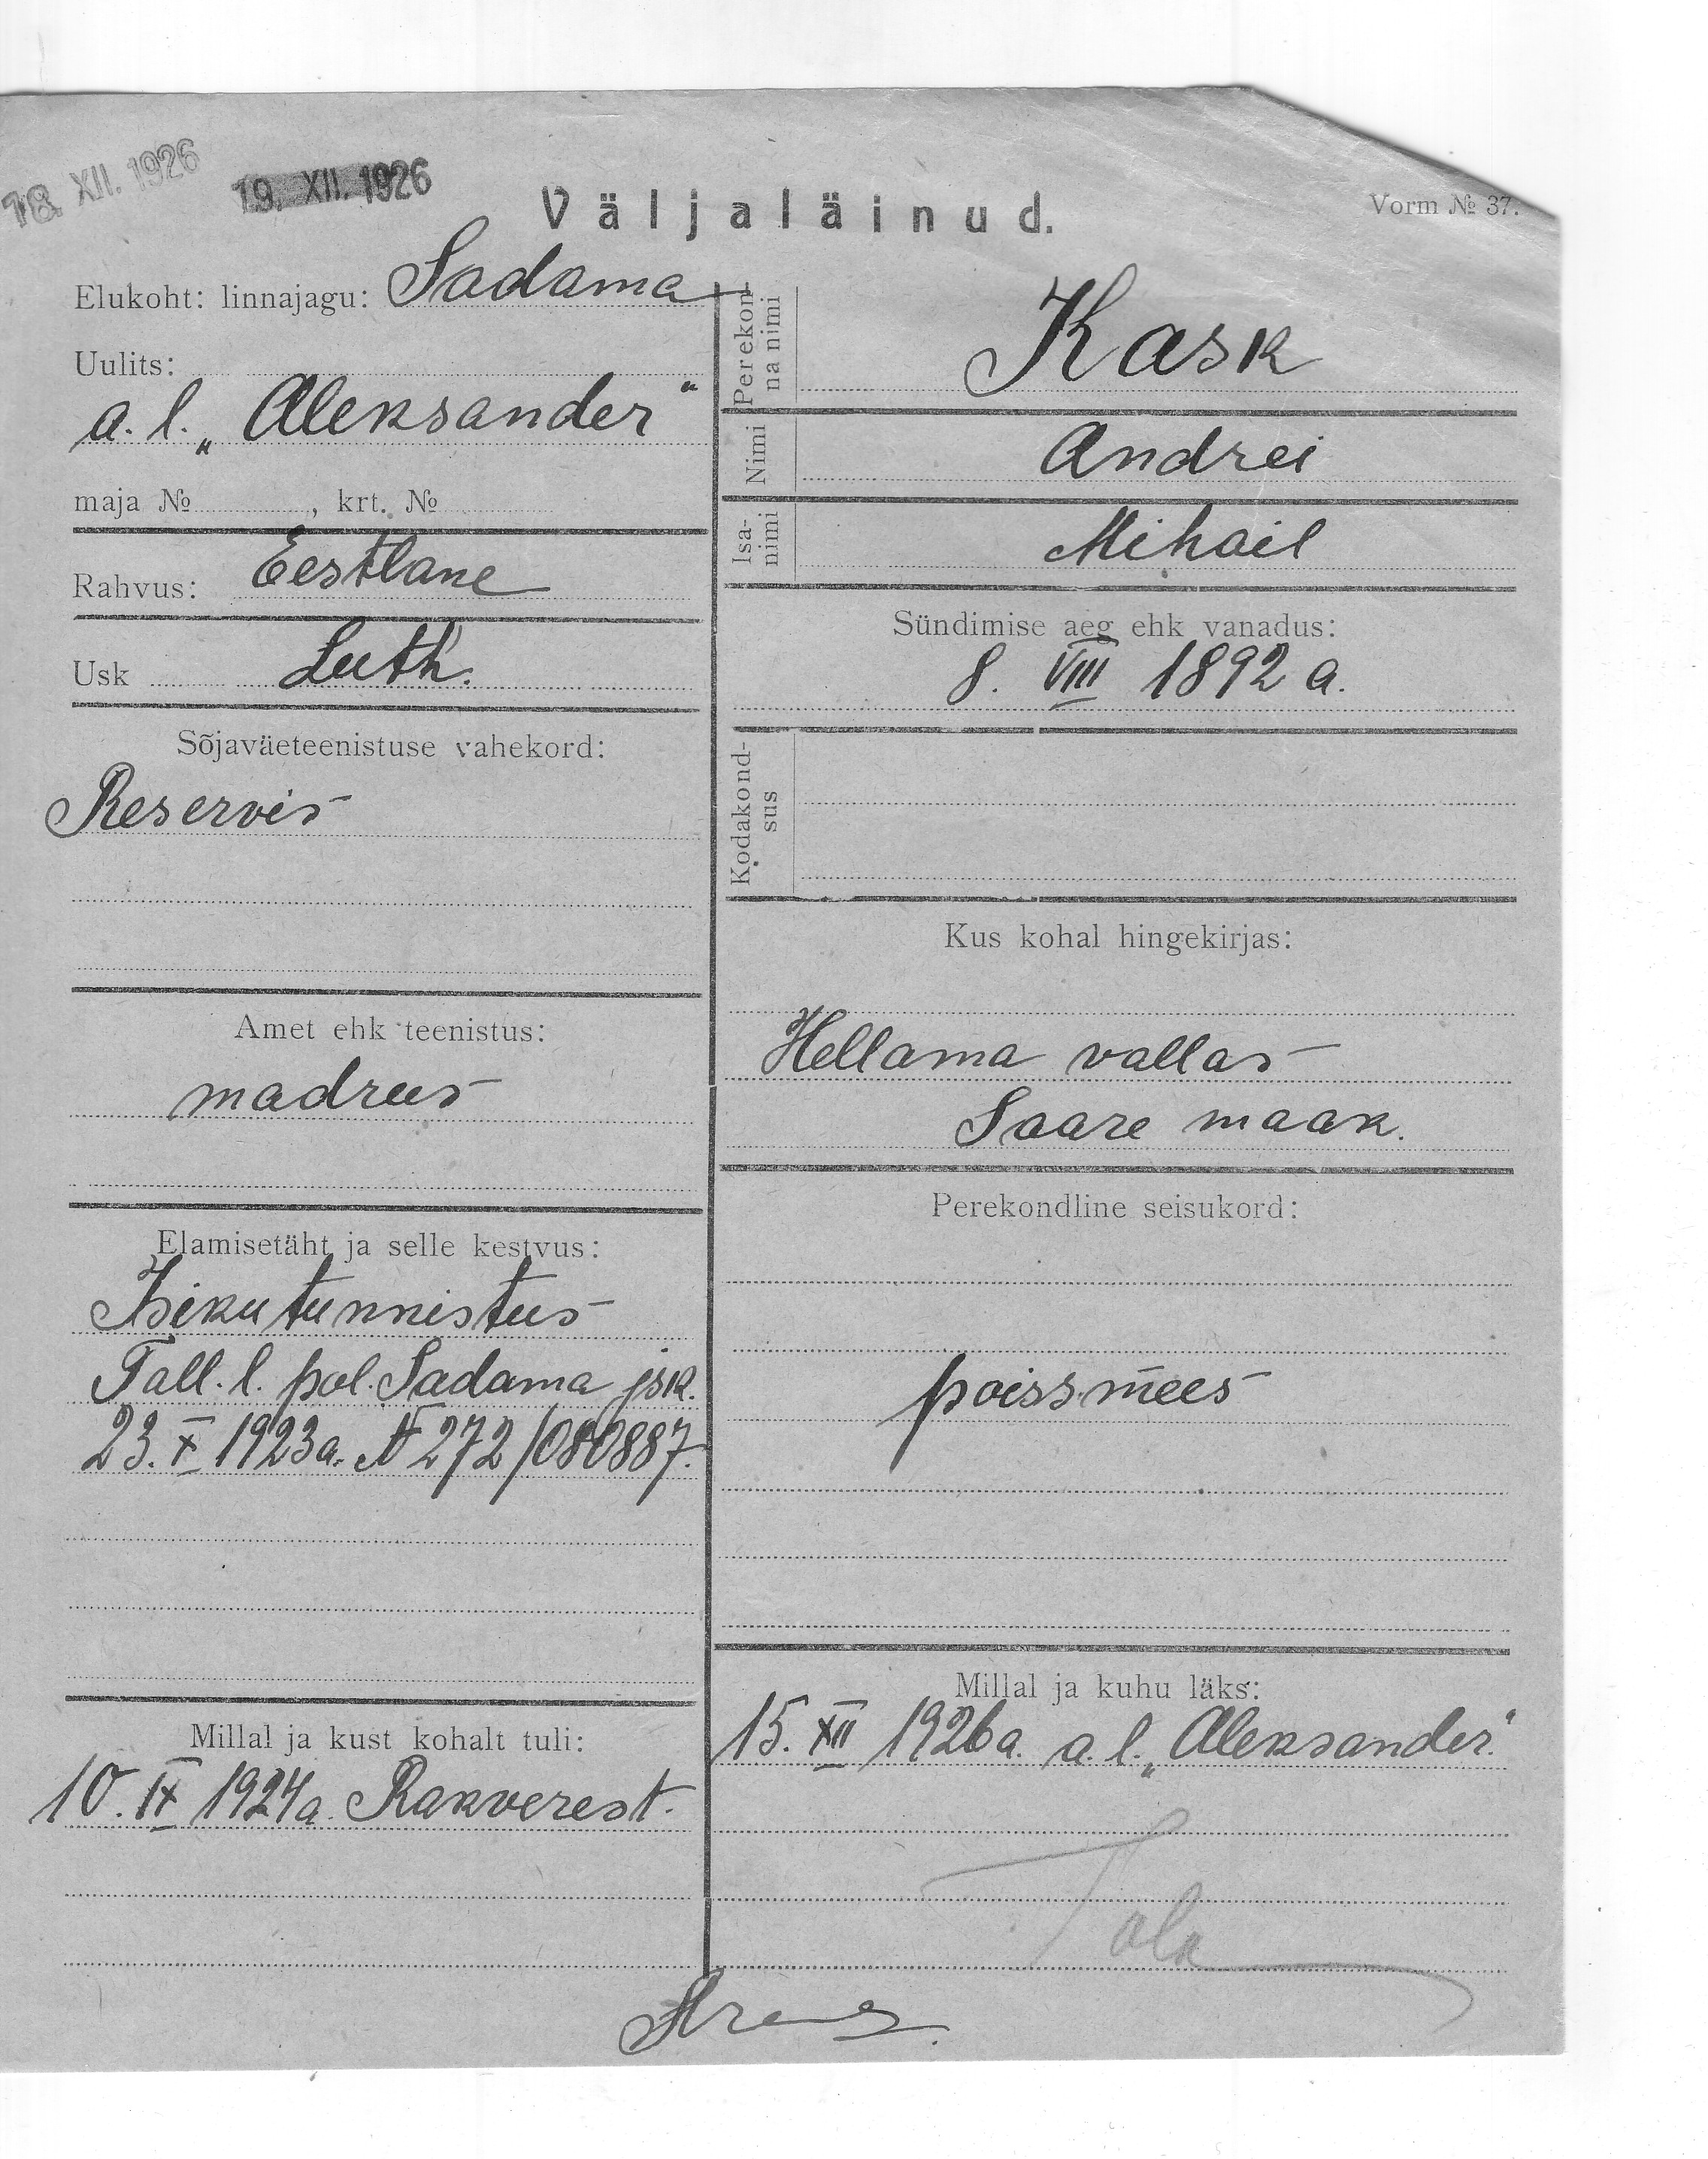 18. XII. 1926
19. XII. 1926
Väljaläinud.
Vorm № 37.
Elukoht: linnajagu: Sadama
Uulits:
a. l. „Aleksander"
maja № , krt. №
Rahvus: Eestlane
Usk Luth.
Sõjaväeteenistuse vahekord:
Reservis
Amet ehk teenistus:
madrus
Elamisetäht ja selle kestvus:
Isikutunnistus
Tall. l. pol. Sadama jsk.
23. X 1923 a. № 272/080887.
Millal ja kust kohalt tuli:
10. IX 1924 a. Rakverest.
Perekonna nimi
Kask
Nimi
Andrei
Isanimi
Mihail
Sündimise aeg ehk vanadus:
8. VIII 1892 a.
Kodakondsus
Kus kohal hingekirjas:
Hellama vallas
Saare maak.
Perekondline seisukord:
poissmees
Millal ja kuhu läks:
15. XII 1926 a. a. l. „Aleksander"